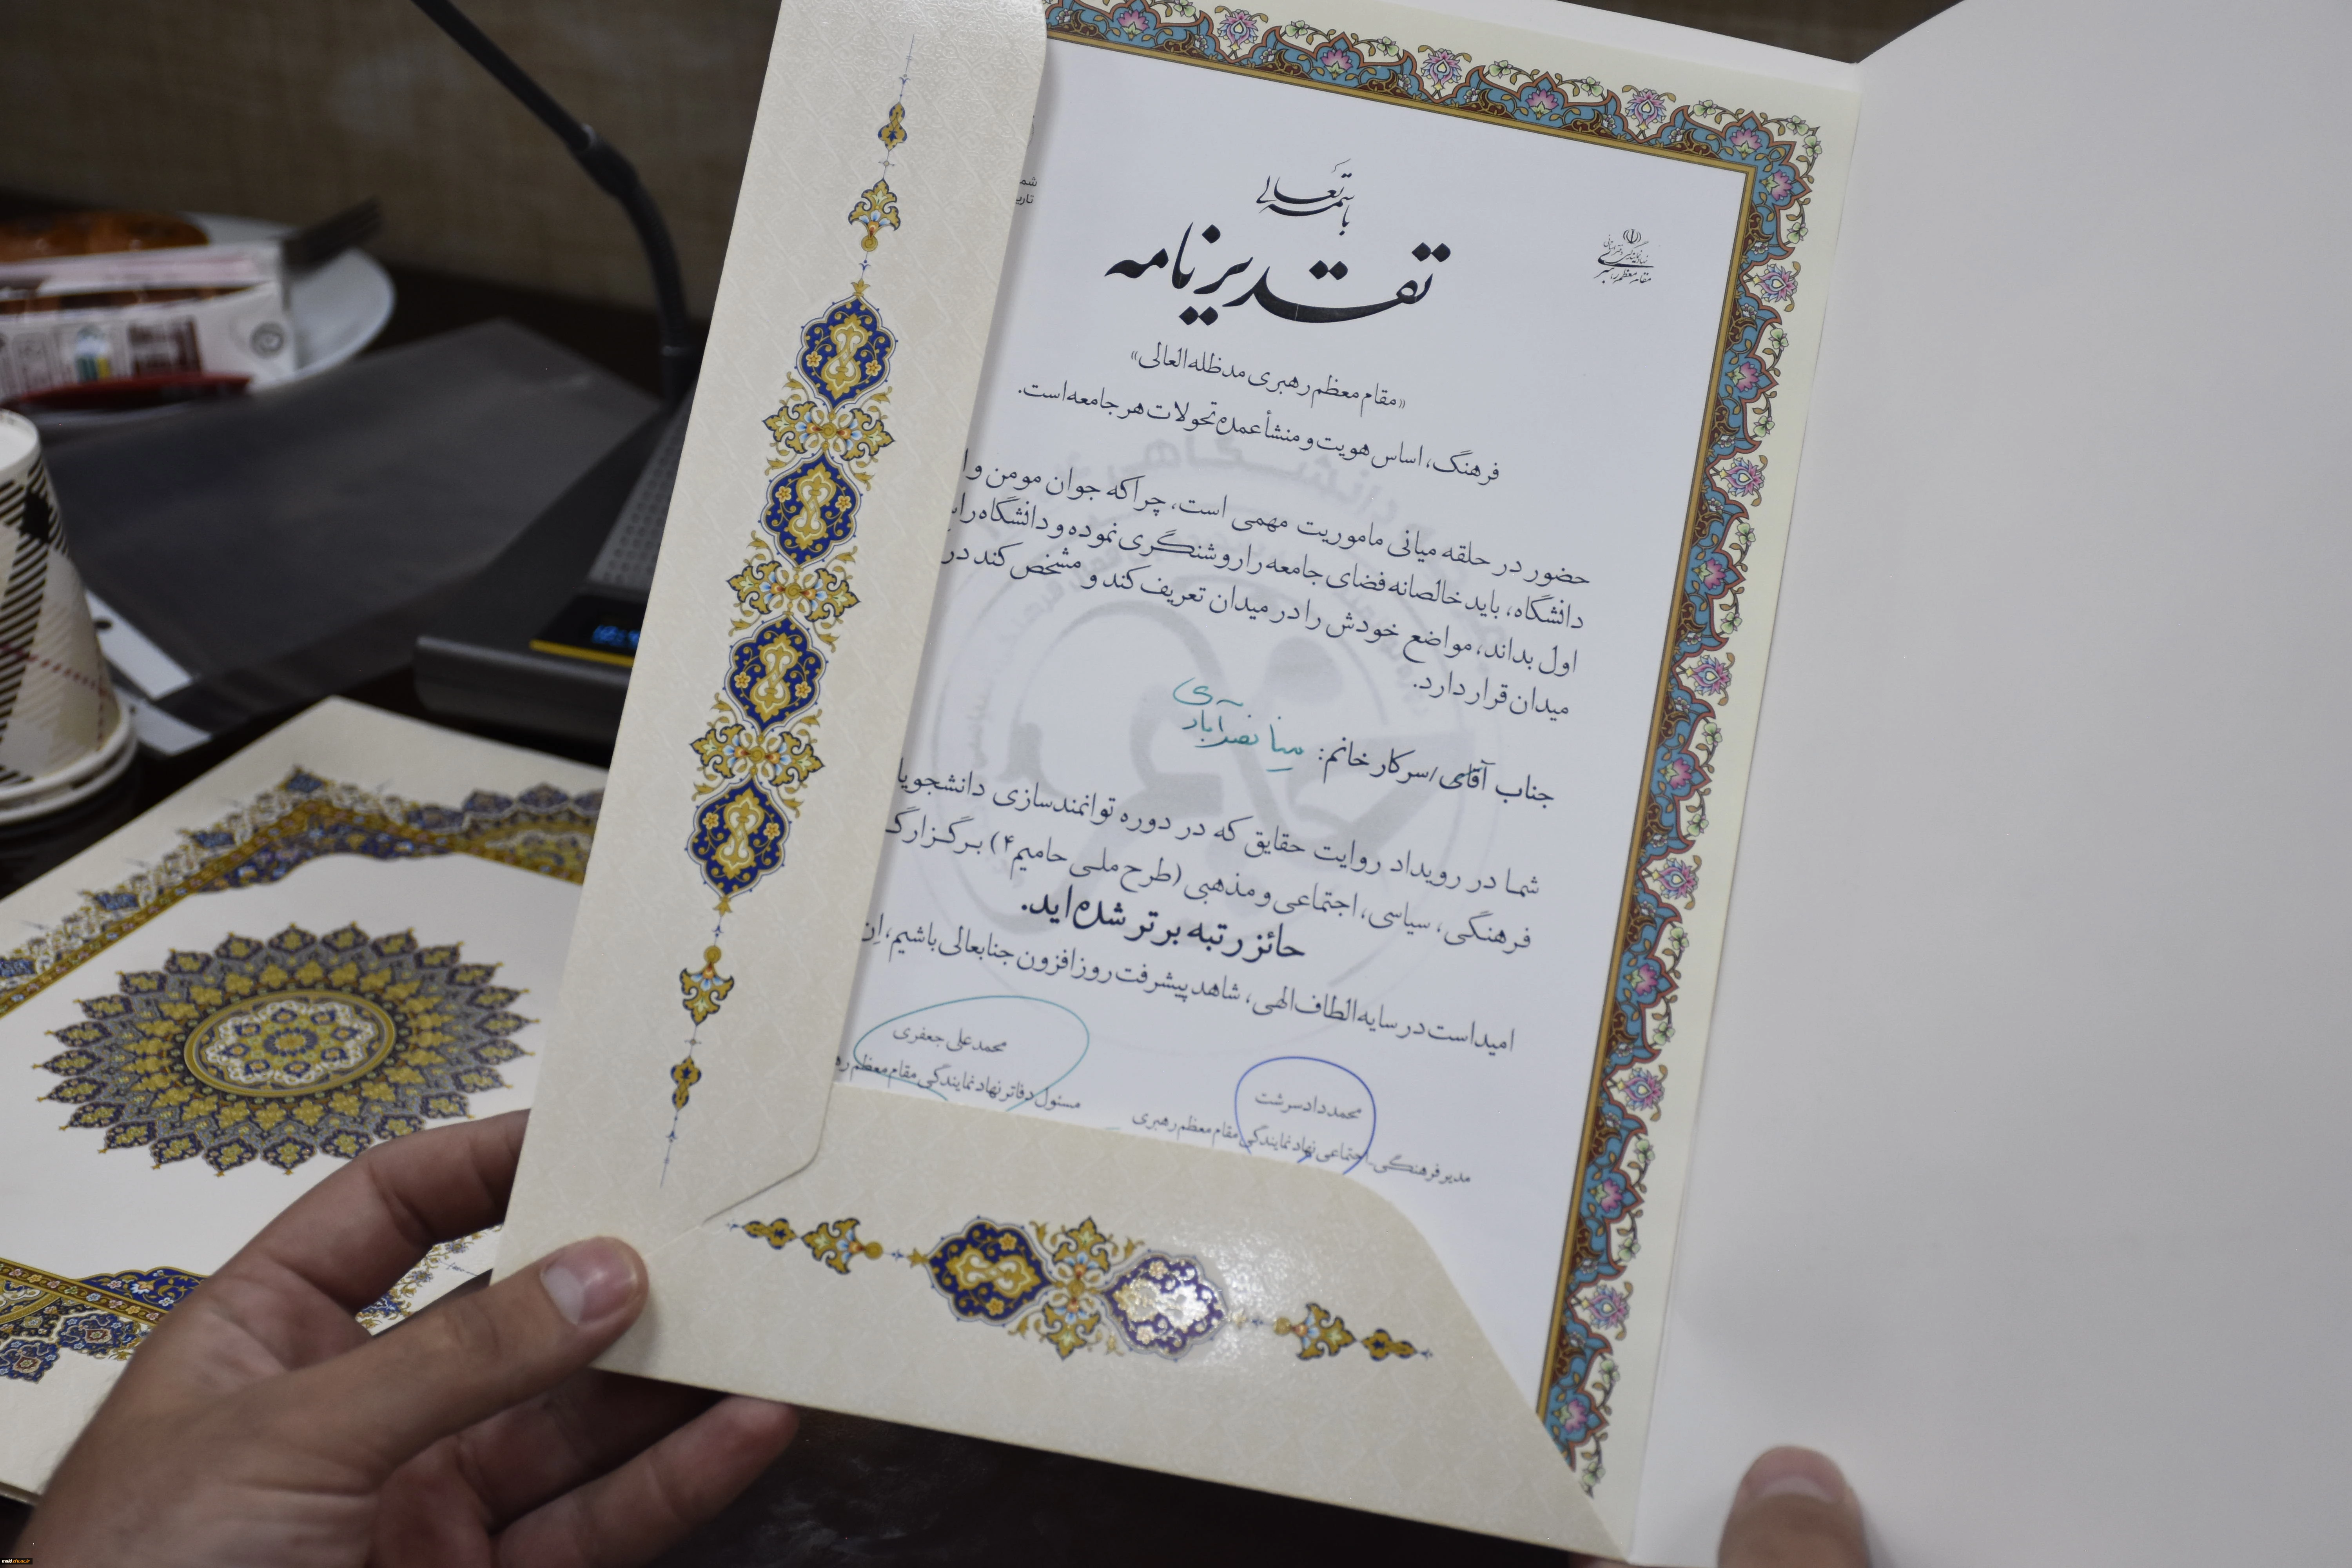 باسمه تعالی
تقدیرنامه
نهاد نمایندگی
مقام معظم رهبری
شم
تاری
«مقام معظم رهبری مدظله العالی»
فرهنگ، اساس هویت و منشأ عمده تحولات هر جامعه است.
حضور در حلقه میانی ماموریت مهمی است، چراکه جوان مومن و ا
دانشگاه، باید خالصانه فضای جامعه را روشنگری نموده و دانشگاه را
اول بداند، مواضع خودش را در میدان تعریف کند و مشخص کند در
میدان قرار دارد.
جناب آقای/سرکار خانم: مینا نصرآبادی
شما در رویداد روایت حقایق که در دوره توانمندسازی دانشجویا
فرهنگی، سیاسی، اجتماعی و مذهبی (طرح ملی حامیم۴) برگزار گ
حائز رتبه برتر شده اید.
امید است در سایه الطاف الهی، شاهد پیشرفت روزافزون جنابعالی باشیم، اِن
محمد دادسرشت
مدیر فرهنگی-اجتماعی نهاد نمایندگی مقام معظم رهبری
محمدعلی جعفری
مسئول دفاتر نهاد نمایندگی مقام معظم ره